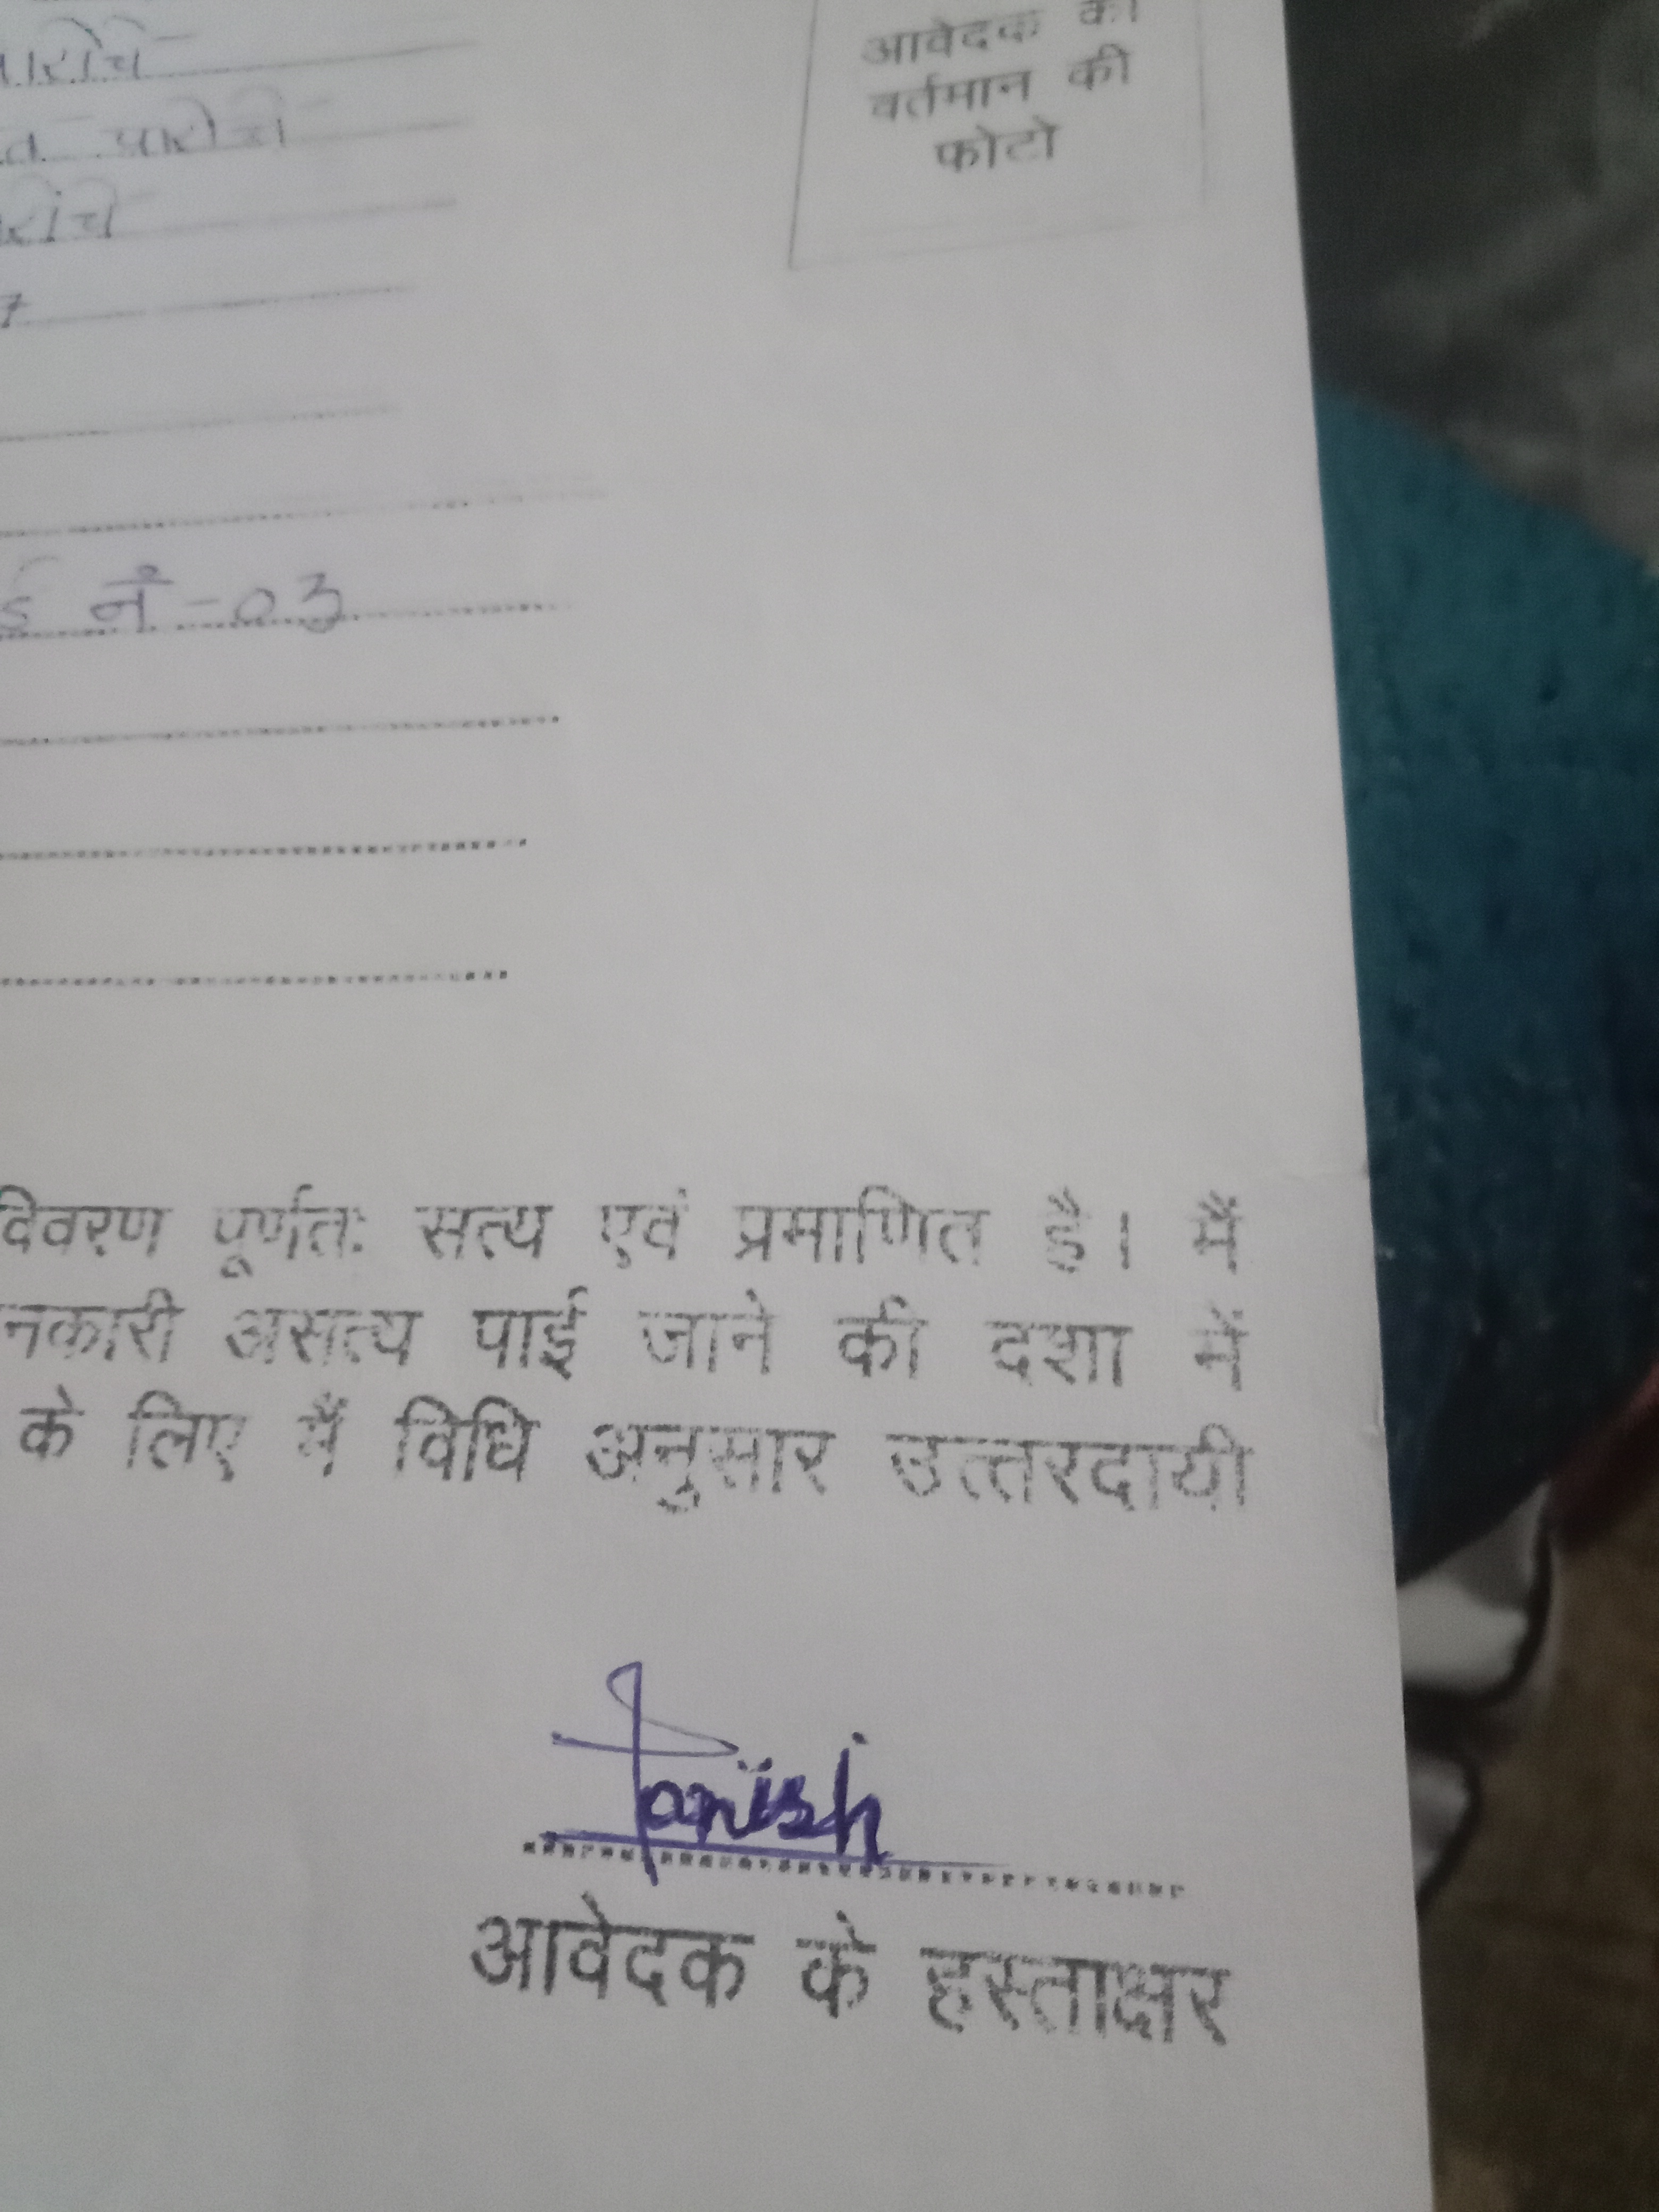 आवेदक का
वर्तमान की
फोटो
नं - 03
विवरण पूर्णतः सत्य एवं प्रमाणित है। मैं
नकारी असत्य पाई जाने की दशा में
के लिए मैं विधि अनुसार उत्तरदायी
Tanish
आवेदक के हस्ताक्षर